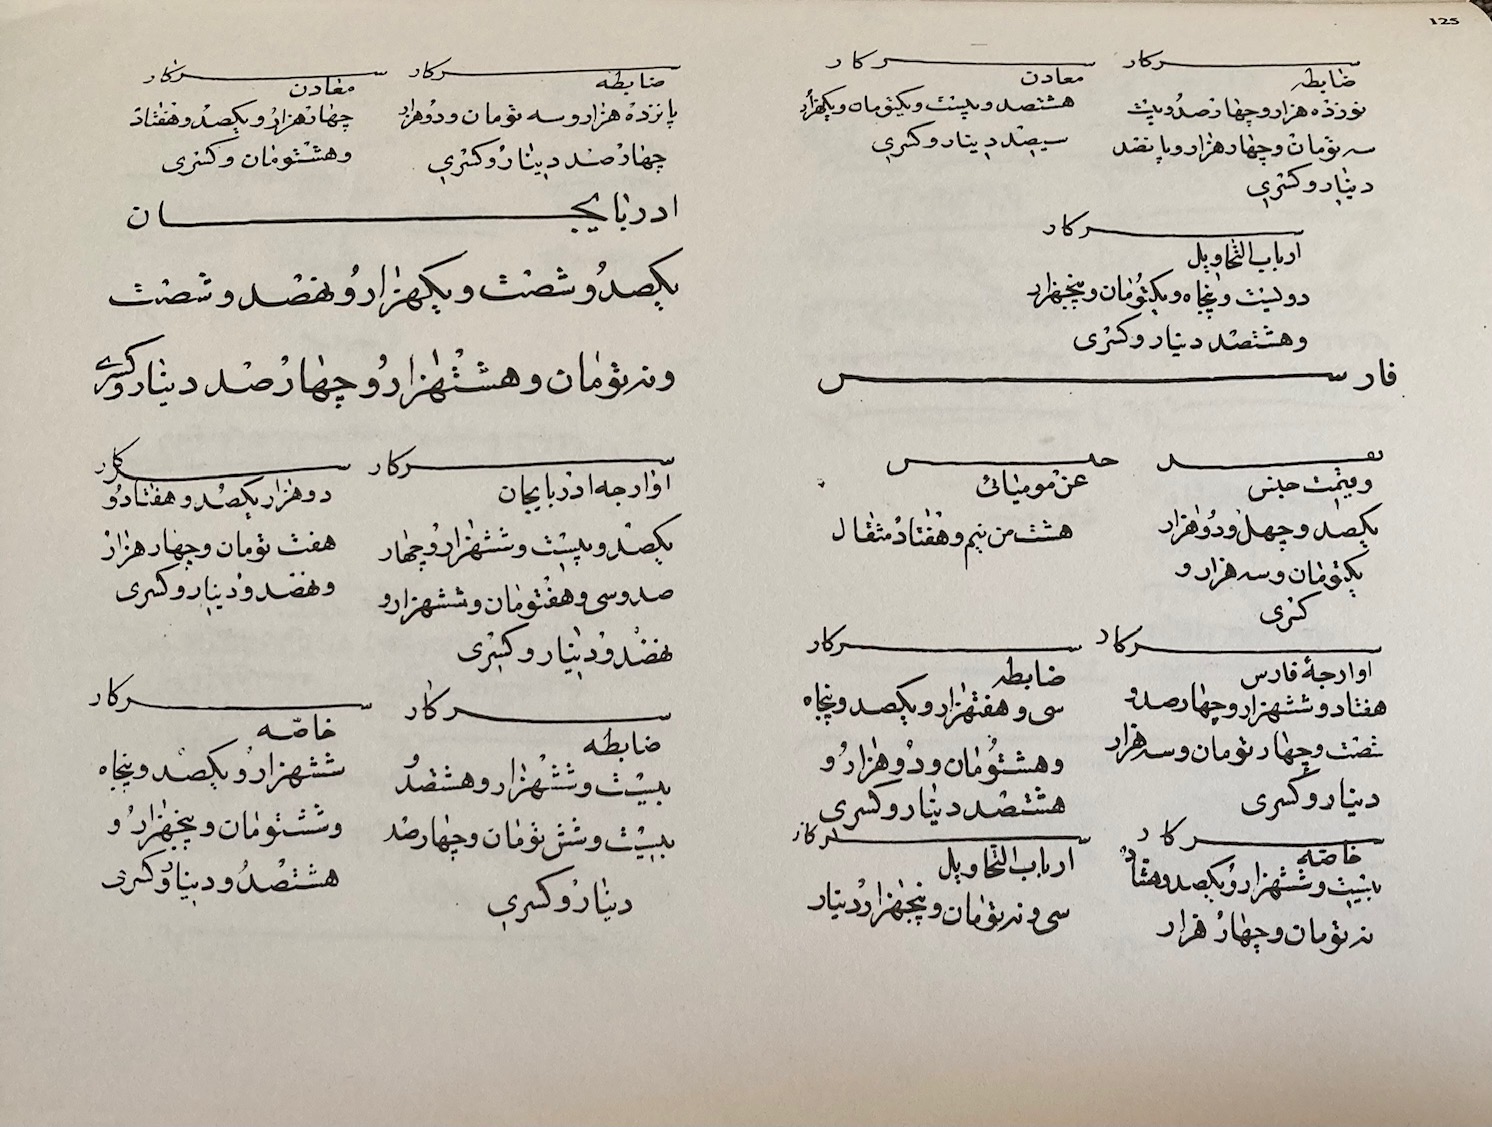 125
سركار
ضابطه
نوزده هزار و چهارصد و بیست
سه تومان و چهار هزار و پانصد
دینار و کسری
سركار
معادن
هشتصد و بیست و یکتومان و یکهزار
سیصد دینار و کسری
سركار
ارباب التحاویل
دویست و پنجاه و یکتومان و پنجهزار
و هشتصد دینار و کسری
فارس
نقد
و قیمت جنس
یکصد و چهل و دو هزار
یکتومان و سه هزار و
کسری
جنس
عن مومیائی
هشت من نیم و هفتاد مثقال
سركار
اوارجۀ فارس
هفتاد و ششهزار و چهارصد و
شصت و چهار تومان و سه هزار
دینار و کسری
سركار
ضابطه
سی و هفتهزار و یکصد و پنجاه
و هشتومان و دو هزار و
هشتصد دینار و کسری
سركار
خاصّه
بیست و ششهزار و یکصد و هشتاد
نه تومان و چهار هزار
سركار
ارباب التحاویل
سی و نه تومان و پنجهزار دینار
سركار
ضابطه
پانزده هزار و سه تومان و دو هزار
چهارصد دینار و کسری
سركار
معادن
چهار هزار و یکصد و هفتاد
و هشتومان و کسری
ادربایجان
یکصد و شصت و یکهزار و نهصد و شصت
و نه تومان و هشتهزار و چهارصد دینار و کسری
سركار
آوارجه اذربایجان
یکصد و بیست و ششهزار و چهار
صد و سی و هفتومان و ششهزار و
نهصد و دینار و کسری
سركار
دو هزار یکصد و هفتاد و
هفت تومان و چهار هزار
و نهصد و دینار و کسری
سركار
ضابطه
بیست و ششهزار و هشتصد
بیست و شش تومان و چهارصد
دینار و کسری
سركار
خاصّه
ششهزار و یکصد و پنجاه
و ششتومان و پنجهزار و
هشتصد و دینار و کسری